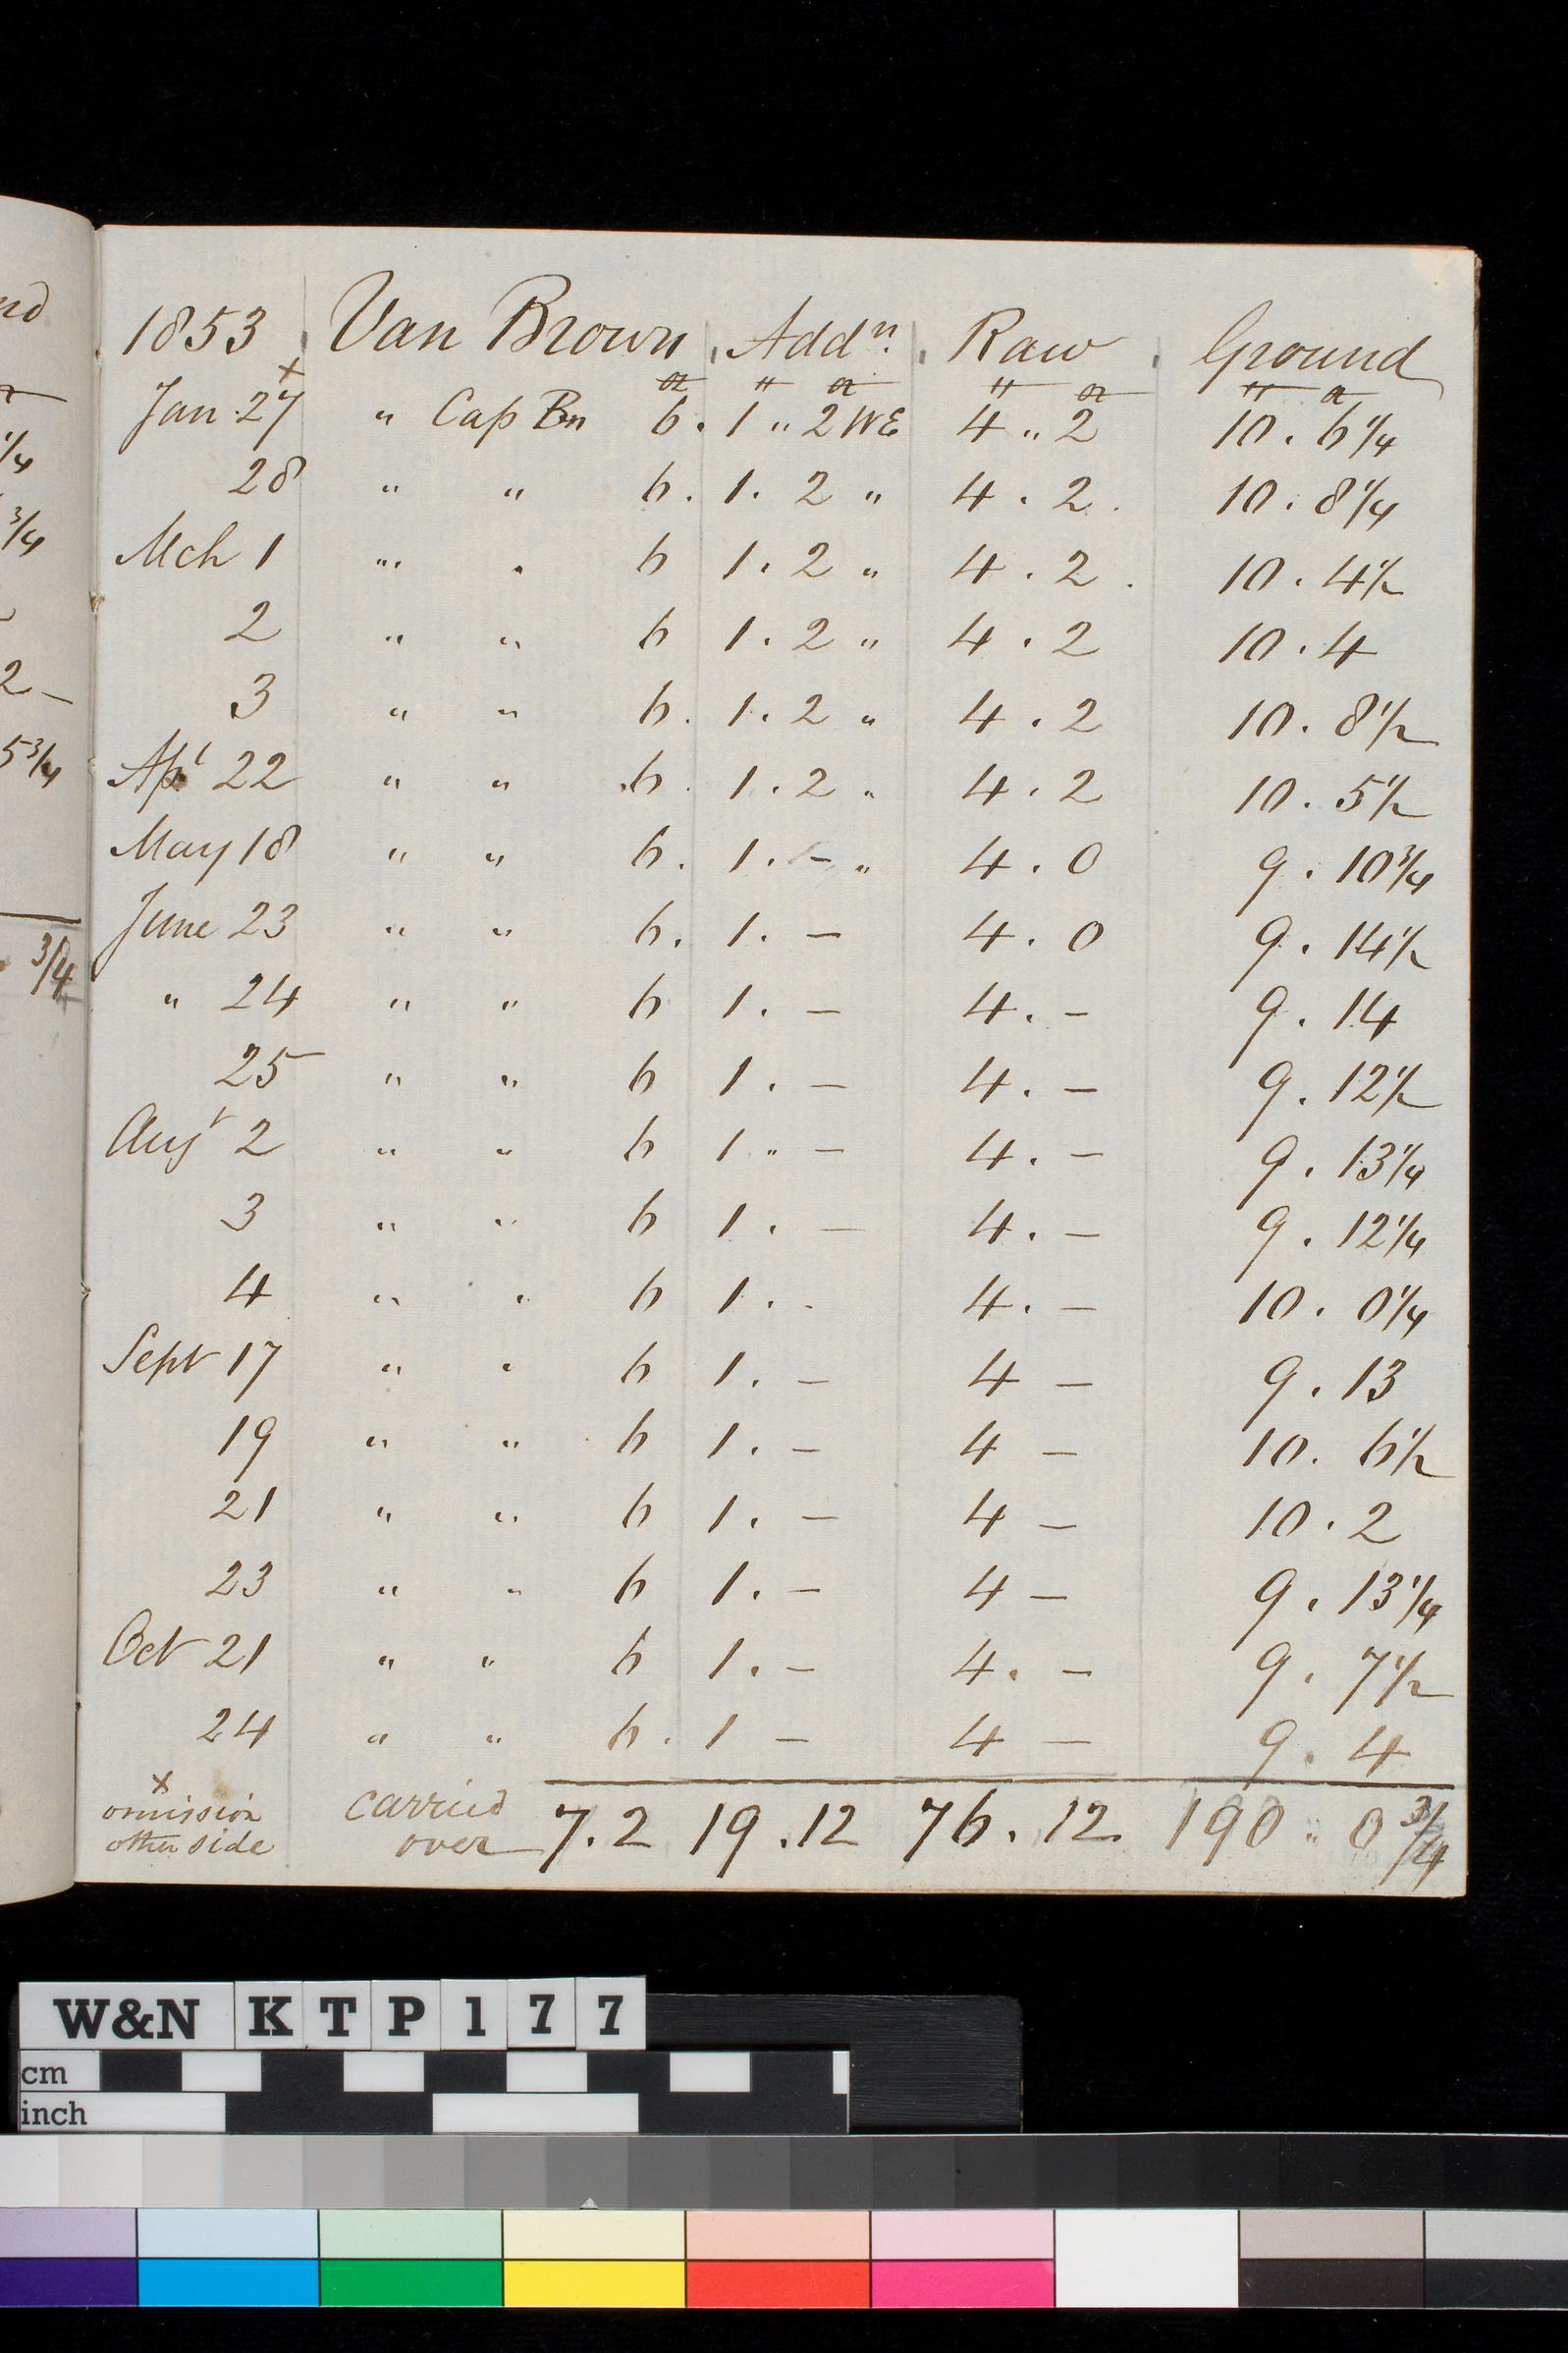 1853 Van Brown Addn. Raw Ground
oz " oz " oz " oz
Jan 27 x " Cap Bn 6. 1 " 2 WE 4 " 2 10. 6 1/4
28 " " 6. 1. 2 " 4. 2. 10. 8 1/4
Mch 1 " " 6 1. 2 " 4. 2. 10. 4 1/2
2 " " 6 1. 2 " 4. 2 10. 4
3 " " 6. 1. 2 " 4. 2 10. 8 1/2
Apl 22 " " 6. 1. 2 " 4. 2 10. 5 1/2
May 18 " " 6. 1. - " 4. 0 9. 10 3/4
June 23 " " 6. 1. - 4. 0 9. 14 1/2
" 24 " " 6 1. - 4. - 9. 14
25 " " 6 1. - 4. - 9. 12 1/2
Augt 2 " " 6 1 " - 4. - 9. 13 1/4
3 " " 6 1. - 4. - 9. 12 1/4
4 " " 6 1. - 4. - 10. 0 1/4
Sept 17 " " 6 1. - 4 - 9. 13
19 " " 6 1. - 4 - 10. 6 1/2
21 " " 6 1. - 4 - 10. 2
23 " " 6 1. - 4 - 9. 13 1/4
Oct 21 " " 6 1. - 4. - 9. 7 1/2
24 " " 6. 1 - 4 - 9. 4
x
omission carried
other side over 7. 2 19. 12 76. 12. 190 " 0 3/4
W&N KTP177
cm
inch